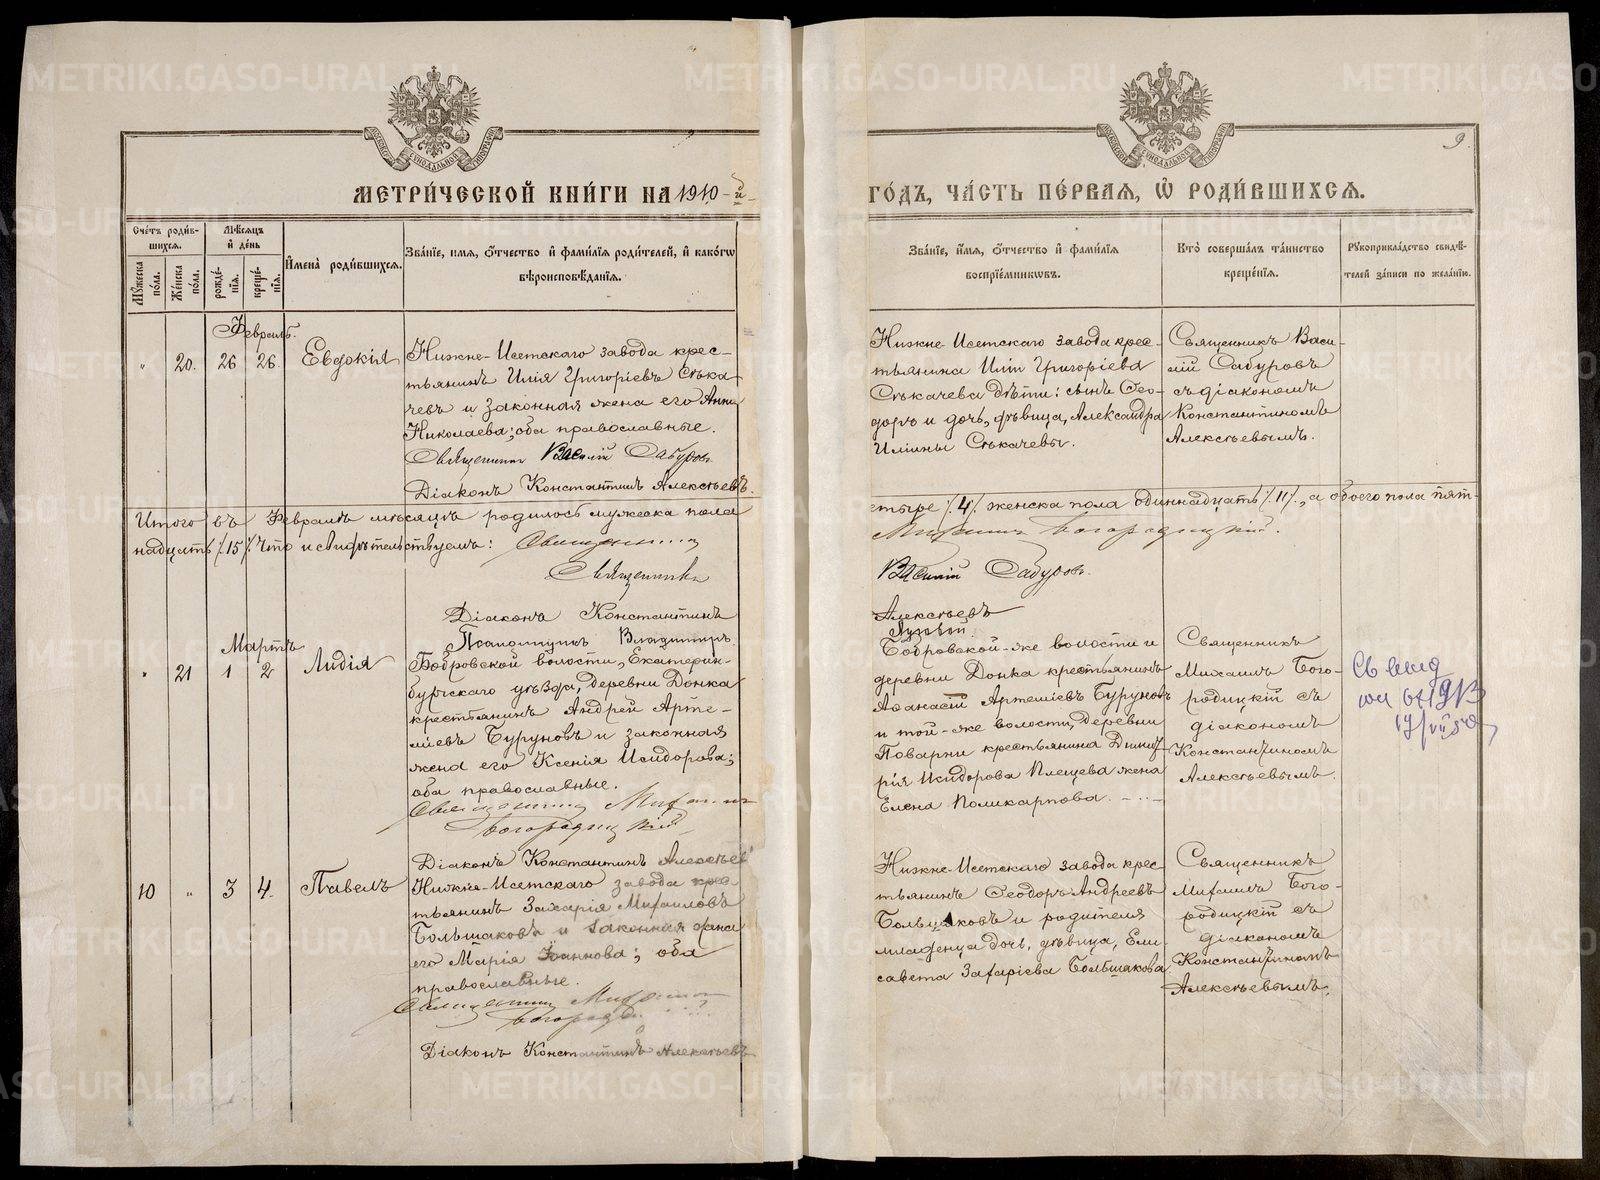 МЕТРИ́ЧЕСКОЙ КНИ́ГИ НА 1910-й
ГО́ДЪ, ЧА́СТЬ ПЕ́РВАЯ, Ѡ҆ РОДИ́ВШИХСЯ.
9.
МОСКОВСКОЙ СѴНОДАЛЬНОЙ ТИПОГРАФІИ
МОСКОВСКОЙ СѴНОДАЛЬНОЙ ТИПОГРАФІИ
Сче́тъ роди́в-
шихся.
Му́жеска по́ла.
Же́нска по́ла.
Мѣ́сяцъ
и҆ де́нь
рожде́-
нїя.
креще́-
нїя.
И҆мена̀ роди́вшихся.
Зва́нїе, имя, ѻ҆́тчество и҆ фами́лїя роди́телей, и҆ како́гѡ
вѣроисповѣ́данїя.
Зва́нїе, и҆́мя, ѻ҆́тчество и҆ фами́лїя
воспрїе́мникѡвъ.
Кто̀ соверша́лъ та́инство
креще́нїя.
Рукоприкла́дство свидѣ́-
телей за́писи по жела́нїю.
Февраль.
" 20. 26 26. Евдокія
Нижне-Исетскаго завода крес-
тьянинъ Илія Григоріевъ Сѣка-
чевъ и законная жена его Анна
Николаева; оба православные.
Священникъ Василій Сабуровъ
Діаконъ Константинъ Алексѣевъ.
Нижне-Исетскаго завода крес-
тьянина Иліи Григоріева
Сѣкачева дѣти: сынъ Ѳео-
доръ и дочь, дѣвица, Александра
Иліины Сѣкачевы.
Священникъ Васи-
лій Сабуровъ
съ діакономъ
Константиномъ
Алексѣевымъ.
Итого въ Февралѣ мѣсяцѣ родилось мужеска пола
етыре /.4/. женска пола одиннадцать /.11/., а обоего пола пят-
надцать /.15/. Что и свидѣтельствуемъ: Священникъ
Михаилъ Богородицкій.
Священникъ
Василій Сабуровъ.
Діаконъ Константинъ
Алексѣевъ
Псаломщикъ Владиміръ
Мартъ
" 21 1 2 Лидія
Бобровской волости, Екатерин-
бургскаго уѣзда, деревни Донка
крестьянинъ Андрей Арте-
міевъ Буруновъ и законная
жена его Ксенія Исидорова;
оба православные.
Священникъ Михаилъ
Богородицкій
Діаконъ Константинъ Алексѣевъ
Бобровской-же волости и
деревни Донка крестьянинъ
Аѳанасій Артеміевъ Буруновъ
и той-же волости, деревни
Поварни крестьянина Димит-
рія Исидорова Плещева жена
Елена Поликарпова.
Священникъ
Михаилъ Бого-
родицкій съ
діакономъ
Константиномъ
Алексѣевымъ.
10 " 3 4. Павелъ
Нижне-Исетскаго завода крес-
тьянинъ Захарія Михаиловъ
Большаковъ и законная жена
его Марія Іоаннова; оба
православные.
Священникъ Михаилъ
Діаконъ Константинъ Алексѣевъ
Нижне-Исетскаго завода крес-
тьянинъ Ѳеодоръ Андреевъ
Большаковъ и родителя
младенца дочь, дѣвица, Ели-
савета Захаріева Большакова
Священникъ
Михаилъ Бого-
родицкій съ
діакономъ
Константиномъ
Алексѣевымъ.
METRIKI.GASO-URAL.RU